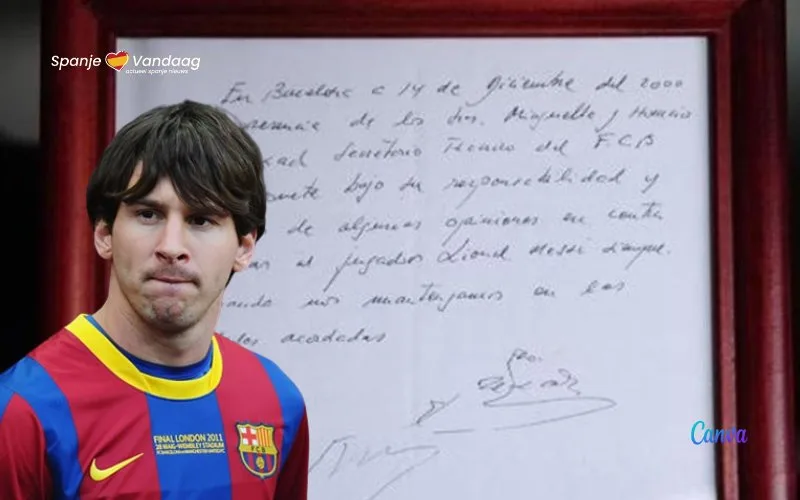 Spanje Vandaag
actueel spanje nieuws
En Barcelona a 14 de Diciembre del 2000
presencia de los Sres. Minguella y Horacio
Secretario Tecnico del F.C.B
bajo su responsabilidad y
de algunas opiniones en contra
al jugador Lionel Messi siempre
nos mantengamos en las
acordadas
FINAL LONDON 2011
28 MAIG-WEMBLEY STADIUM
FCB
Canva